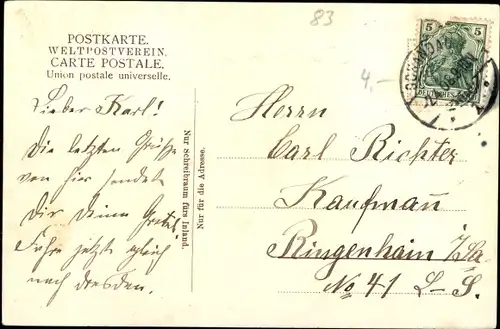 83
POSTKARTE.
WELTPOSTVEREIN.
CARTE POSTALE.
Union postale universelle.
4.-
5 5
SCHANDAU
DEUTSCHES
Lieber Karl!
Die letzten Grüße
von hier sendet
Dir Deine Gretel.
Fahre jetzt gleich
nach Dresden.
Nur Schreibraum fürs Inland.
Nur für die Adresse.
Herrn
Carl Richter
Kaufmann
Ringenhain i/Sa
No 41 L-S.